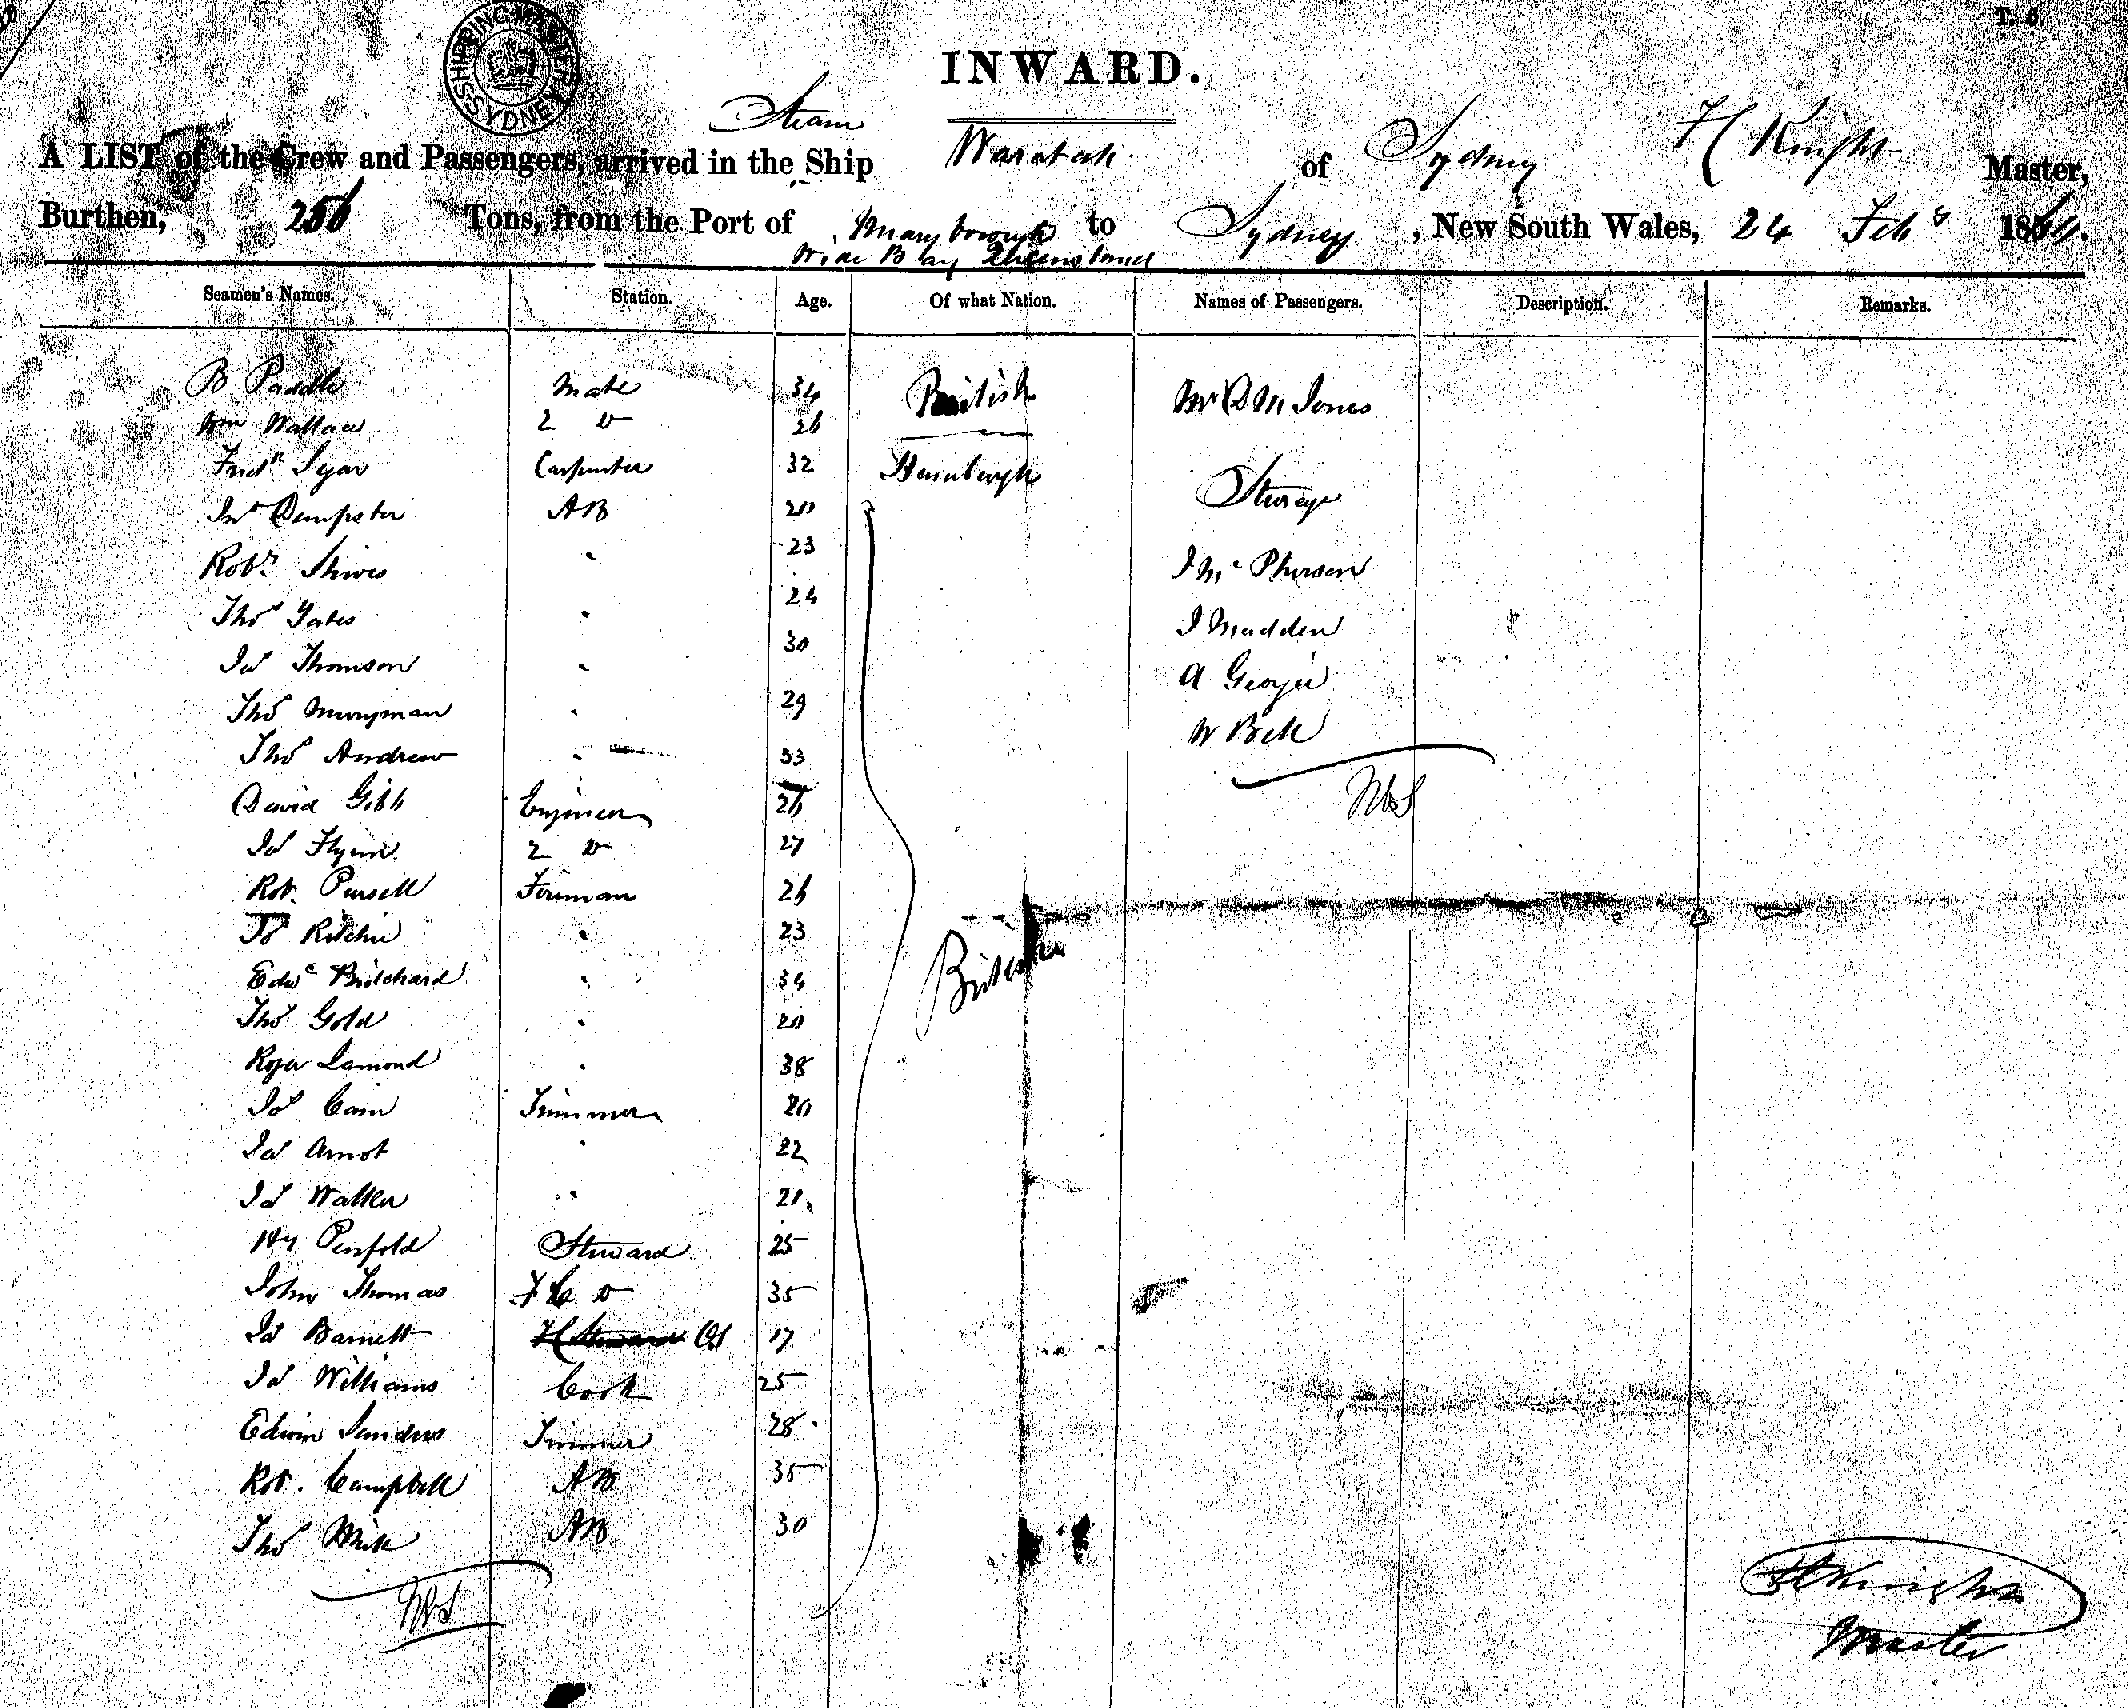 T. 5
SHIPPING MASTER SYDNEY
INWARD.
A LIST of the Crew and Passengers, arrived in the Steam Ship Waratah of Sydney H Knight Master,
Burthen, 256 Tons, from the Port of Maryborough to Sydney, New South Wales, 24 Feby 186
Wide Bay Queensland
Seamen's Names. Station. Age. Of what Nation. Names of Passengers. Description. Remarks.
B Paddle Mate 34 British Mr D M Jones
Wm Wallace 2 Do 26
Fredk Syar Carpenter 32
Steerage
Jno Dempster AB 20
Robt Shives " 23 J Mc Pherson
Thos Yates " 24 J Madden
Js Thomson " 30 A Georgie
Thos Merryman " 29 W Bell
Thos Andrew " 33
David Gibb Engineer 26
Js Flynn 2 Do 27
Rob. Pursell Foreman 26
Js Ritchie " 23
British
Edwd Pritchard " 34
Thos Gold " 20
Roger Lamond " 38
Js Cain Trimmer 20
Js Arnot " 22
Js Walker " 21
Hy Penfold Steward 25
John Thomas F C Do 35
Js Barnett OS 17
Js Williams Cook 25
Edwin Sanders Trimmer 28
Rob. Campbell AB 35
Thos AB 30
H Knight
Master